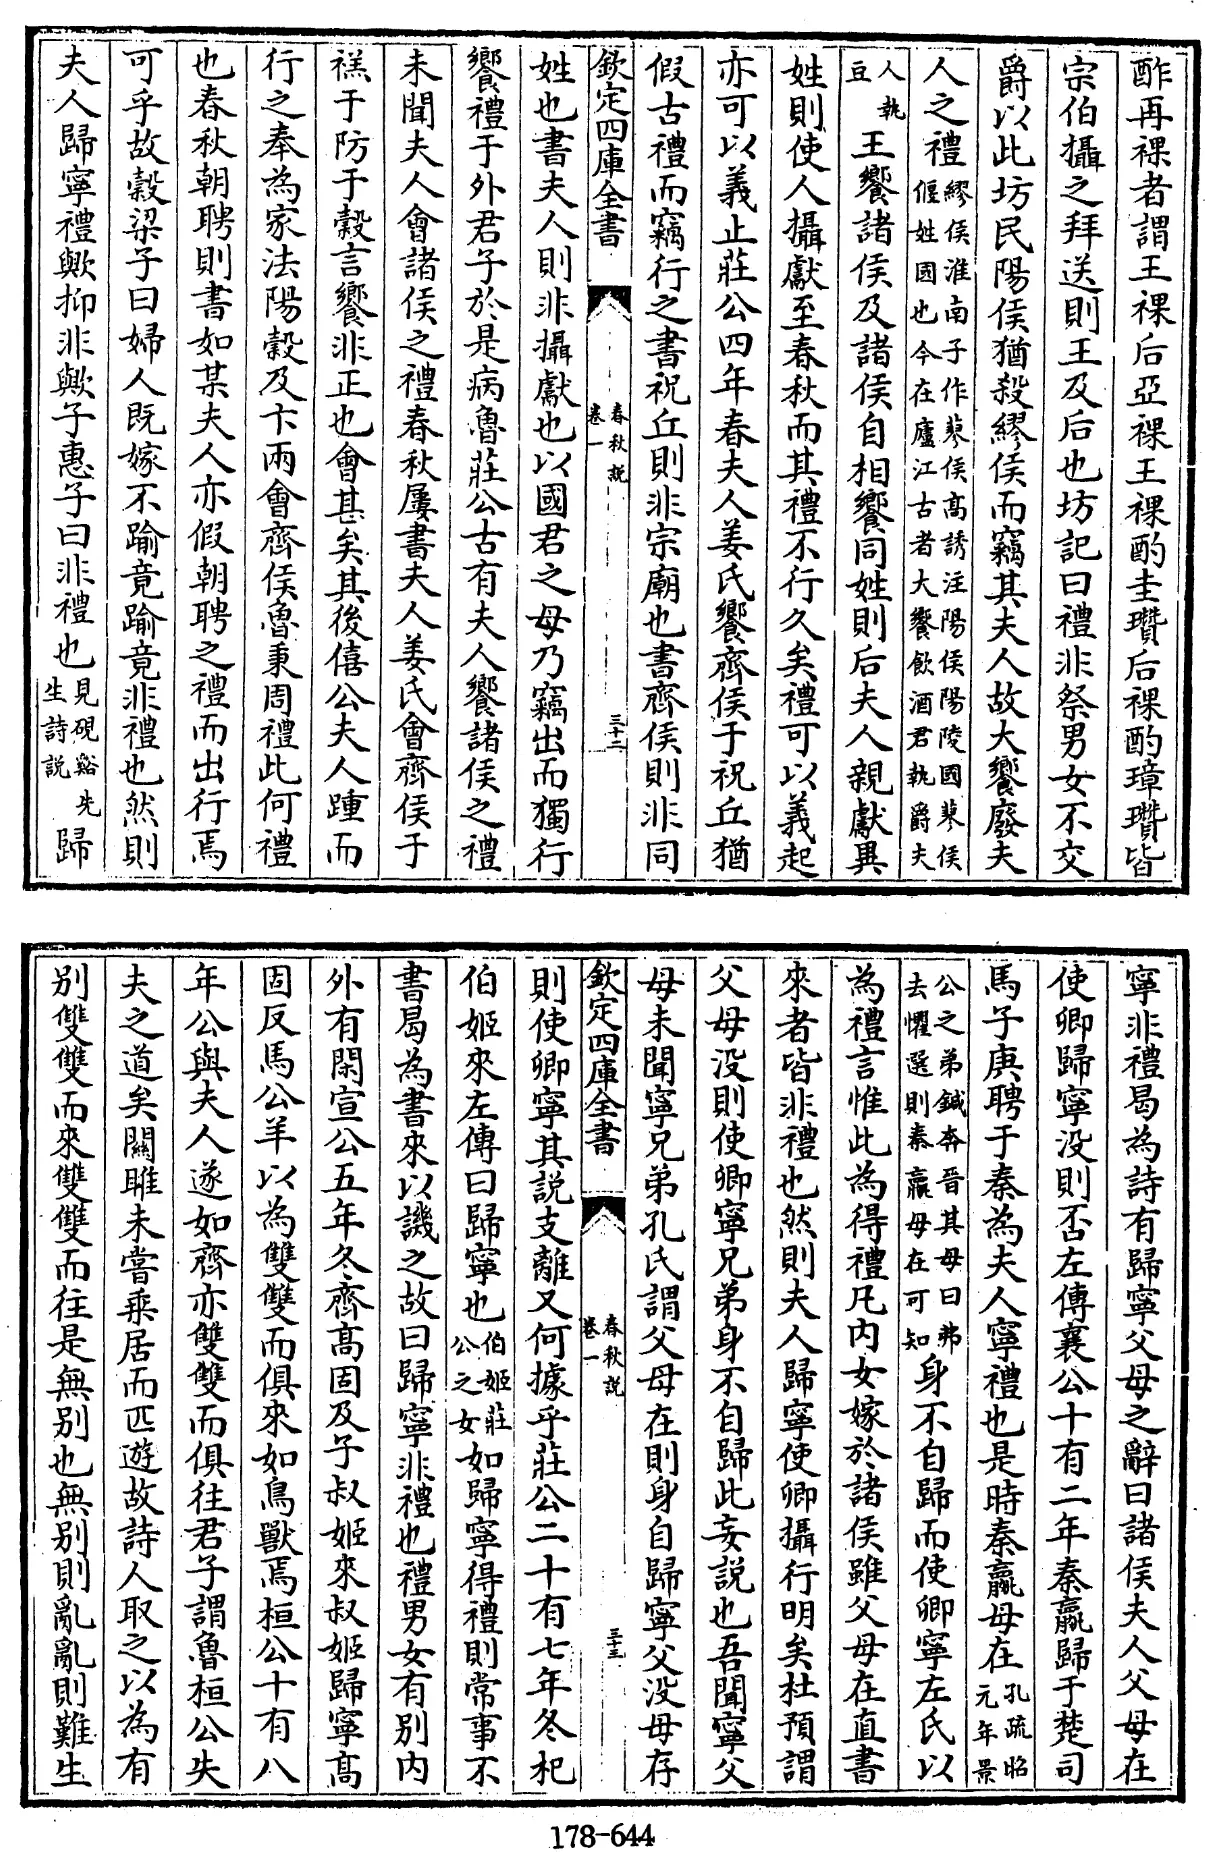 酢再祼者謂王祼后亞祼王祼酌圭瓚后祼酌璋瓚皆
宗伯攝之拜送則王及后也坊記曰禮非祭男女不交
爵以此坊民陽侯猶殺繆侯而竊其夫人故大饗廢夫
人之禮繆侯淮南子作蓼侯高誘注陽侯陽陵國蓼侯
偃姓國也今在廬江古者大饗飲酒君執爵夫
人執
豆王饗諸侯及諸侯自相饗同姓則后夫人親獻異
姓則使人攝獻至春秋而其禮不行久矣禮可以義起
亦可以義止莊公四年春夫人姜氏饗齊侯于祝丘猶
假古禮而竊行之書祝丘則非宗廟也書齊侯則非同
欽定四庫全書
春秋説
卷一
三十二
姓也書夫人則非攝獻也以國君之母乃竊出而獨行
饗禮于外君子於是病魯莊公古有夫人饗諸侯之禮
未聞夫人會諸侯之禮春秋屢書夫人姜氏會齊侯于
禚于防于糓言饗非正也會甚矣其後僖公夫人踵而
行之奉為家法陽糓及卞兩會齊侯魯秉周禮此何禮
也春秋朝聘則書如某夫人亦假朝聘之禮而出行焉
可乎故糓梁子曰婦人既嫁不踰竟踰竟非禮也然則
夫人歸寧禮歟抑非歟子惠子曰非禮也見硯谿先
生詩説
歸
寧非禮曷為詩有歸寧父母之辭曰諸侯夫人父母在
使卿歸寧没則否左傳襄公十有二年秦嬴歸于楚司
馬子庚聘于秦為夫人寧禮也是時秦嬴母在孔疏昭
元年景
公之弟鍼奔晉其母曰弗
去懼選則秦嬴母在可知身不自歸而使卿寧左氏以
為禮言惟此為得禮凡内女嫁於諸侯雖父母在直書
來者皆非禮也然則夫人歸寧使卿攝行明矣杜預謂
父母没則使卿寧兄弟身不自歸此妄説也吾聞寧父
母未聞寧兄弟孔氏謂父母在則身自歸寧父没母存
欽定四庫全書
春秋説
卷一
三十三
則使卿寧其説支離又何據乎莊公二十有七年冬杞
伯姬來左傳曰歸寧也伯姬莊
公之女如歸寧得禮則常事不
書曷為書來以譏之故曰歸寧非禮也禮男女有别内
外有閑宣公五年冬齊髙固及子叔姬來叔姬歸寧髙
固反馬公羊以為雙雙而俱來如鳥獸焉桓公十有八
年公與夫人遂如齊亦雙雙而俱往君子謂魯桓公失
夫之道矣關雎未嘗乘居而匹遊故詩人取之以為有
别雙雙而來雙雙而往是無别也無别則亂亂則難生
178-644